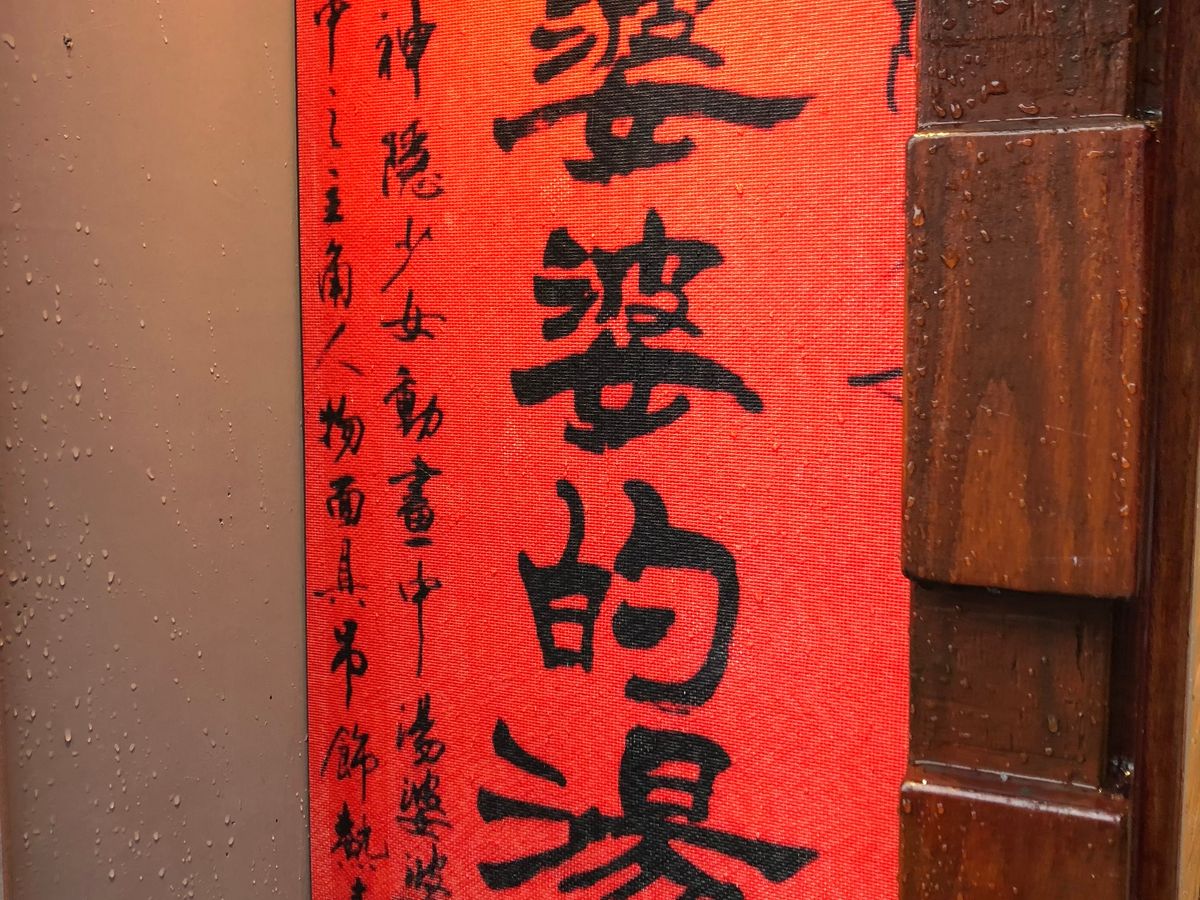 婆婆的湯
神隱少女動畫中湯婆婆
中之主角人物面具吊飾